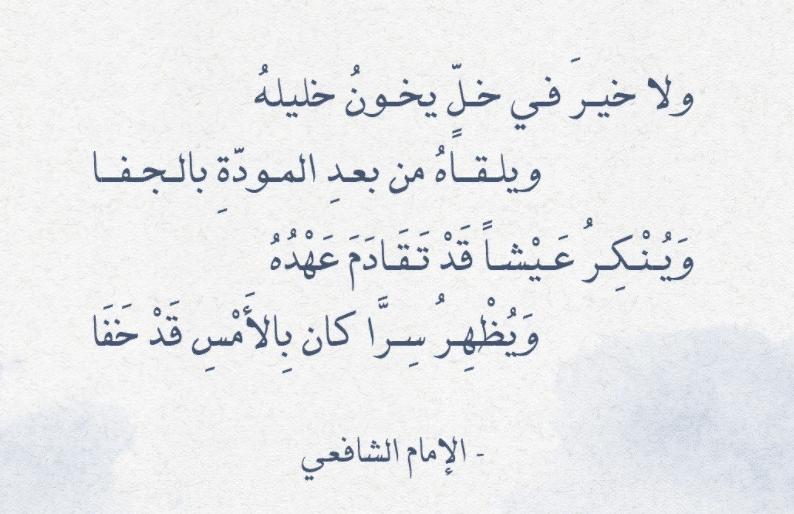 ولا خيرَ في خلّ يخونُ خليلهُ
ويلقاًهُ من بعدِ المودّةِ بالجفا
وَيُنْكِرُ عَيْشاً قَدْ تَقَادَمَ عَهْدُهُ
وَيُظْهِرُ سِرًّا كان بِالأَمْسِ قَدْ خَفَا
- الإمام الشافعي